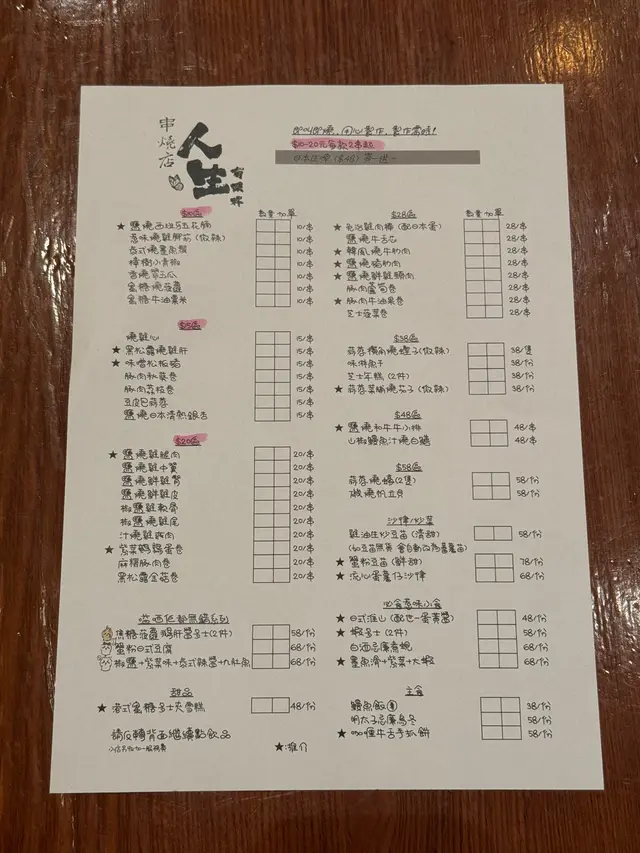 串燒店
人生
有串燒
即叫即燒，用心製作，製作需時！
$10-20元每款2串起
$10區
數量 加單
★ 鹽燒西班牙五花腩 10/串
惹味燒雞胗筋(微辣) 10/串
泰式燒墨魚鬚 10/串
樟樹小青椒 10/串
香燒翠玉瓜 10/串
蜜糖燒菠蘿 10/串
蜜糖牛油粟米 10/串
$15區
燒雞心 15/串
★ 黑松露燒雞肝 15/串
★ 味噌松板豬 15/串
豚肉秋葵卷 15/串
豚肉荔枝卷 15/串
豆皮包蒜蓉 15/串
鹽燒日本清熱銀杏 15/串
$20區
★ 鹽燒雞腿肉 20/串
鹽燒雞中翼 20/串
鹽燒鮮雞腎 20/串
鹽燒鮮雞皮 20/串
椒鹽雞軟骨 20/串
椒鹽燒雞尾 20/串
汁燒雞豚肉 20/串
★ 紫菜鵪鶉蛋卷 20/串
麻糬豚肉卷 20/串
黑松露金菇卷 20/串
塔西佗都無鍚系列
焦糖菠蘿鵝肝醬多士(2件) 58/份
蟹粉日式豆腐 68/份
椒鹽+紫菜味+泰式辣醬+九肚魚 68/份
甜品
★ 港式蜜糖多士夾雪糕 48/份
請反轉背面繼續點飲品
小店另收加一服務費
★:推介
$28區
數量 加單
★ 免治雞肉棒(配日本蛋) 28/串
鹽燒牛舌芯 28/串
★ 韓風燒牛肋肉 28/串
★ 鹽燒豬肋肉 28/串
★ 鹽燒鮮雞頸肉 28/串
豚肉蘆筍卷 28/串
★ 豚肉牛油果卷 28/串
芝士菠菜卷 28/串
$38區
蒜蓉欖角燒蟶子(微辣) 38/隻
味淋魚干 38/份
芝士年糕(2件) 38/份
★ 蒜蓉菜脯燒茄子(微辣) 38/份
$48區
★ 鹽燒和牛牛小排 48/串
山椒鰻魚汁燒白鱔 48/串
$58區
蒜蓉燒蠔(2隻) 58/份
燉燒帆立貝 58/份
沙律/炒菜
雞油生炒豆苗(清甜) 58/份
(如豆苗無貨 會自動改為番薯苗)
★ 蟹粉豆苗(鮮甜) 78/份
★ 流心蛋薯仔沙律 68/份
必食惹味小食
★ 日式淮山(配芭一蛋黃醬) 48/份
★ 蝦多士(2件) 58/份
白酒忌廉青蜆 68/份
★ 墨魚滑+紫菜+大蝦 68/份
主食
鰻魚飯 38/份
明太子忌廉烏冬 58/份
★ 咖喱牛舌手抓餅 58/份